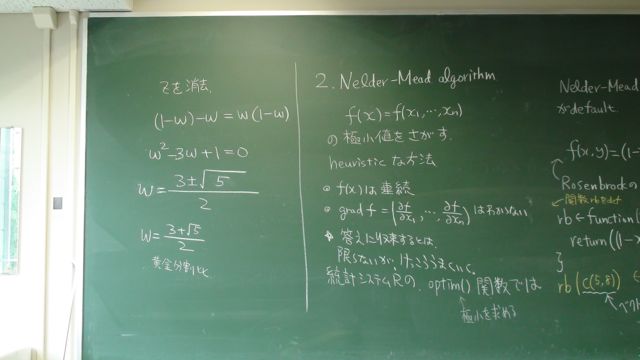 zを消去
(1-w)-w = w(1-w)
w²-3w+1=0
w = 3±√5 / 2
w = 3±√5 / 2
黄金分割比
2. Nelder-Mead algorithm
f(x)=f(x₁,⋯,xₙ)
の極小値をさがす.
heuristic な方法
• f(x)は連続
• grad f = (∂f/∂x₁, ⋯, ∂f/∂xₙ) はわからない
• 答えに収束するとは
限らないが, けっこううまくいく.
統計システムRの, optim() 関数では
↑
極小を求める
Nelder-Mead
がdefault.
f(x,y)=(1-
Rosenbrockの
← 関数rbをdef
rb ← function(
return((1-
}
rb(c(5,8)) ←
ベクト